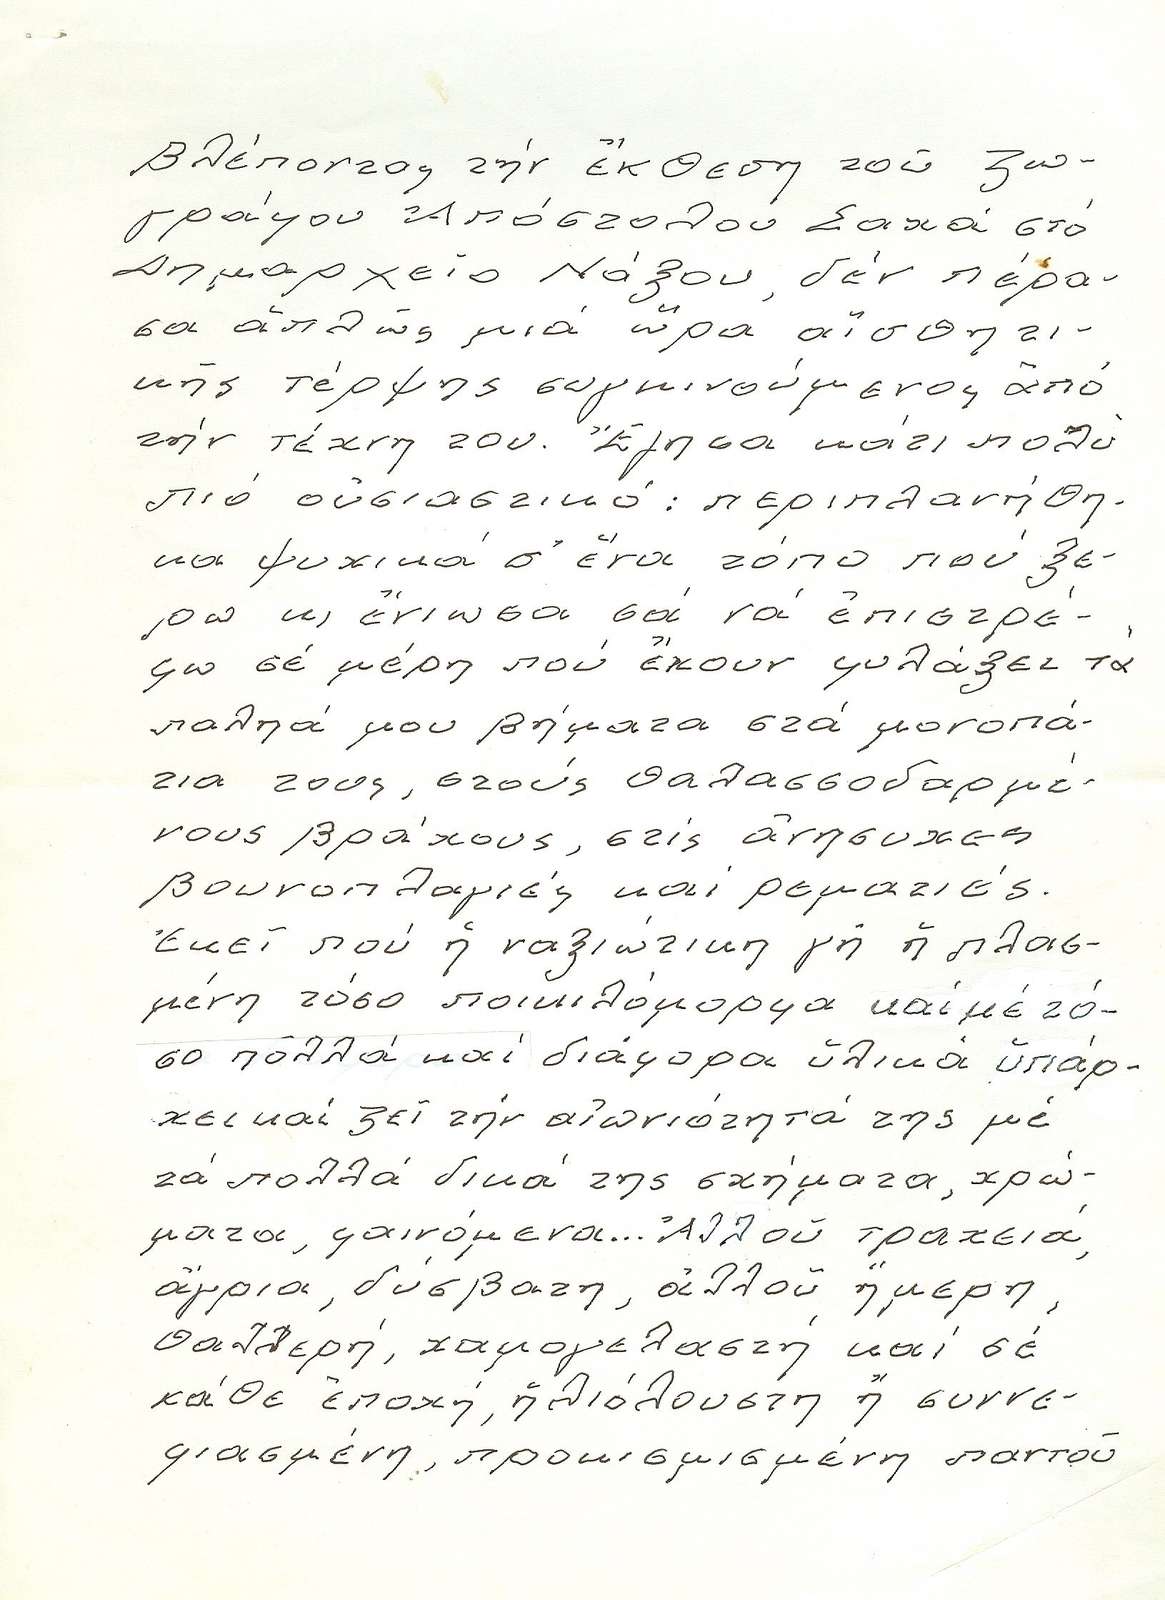 Βλέποντας τήν ἔκθεση τοῦ ζω-
γράφου Ἀπόστολου Σαχά στό
Δημαρχεῖο Νάξου, δέν πέρα-
σα ἁπλῶς μιά ὥρα αἰσθητι-
κῆς τέρψης συγκινούμενος ἀπό
τήν τέχνη του. Ἔζησα κάτι πολύ
πιό οὐσιαστικό: περιπλανήθη-
κα ψυχικά σ' ἕνα τόπο πού ξέ-
ρω κι ἔνιωσα σά νά ἐπιστρέ-
φω σέ μέρη πού ἔχουν φυλάξει τά
παληά μου βήματα στά μονοπά-
τια τους, στούς θαλασσοδαρμέ-
νους βράχους, στίς ἀνήσυχες
βουνοπλαγιές καί ρεματιές.
Ἐκεῖ πού ἡ ναξιώτικη γῆ ἡ πλασ-
μένη τόσο ποικιλόμορφα καί μέ τό-
σο πολλά καί διάφορα ὑλικά ὑπάρ-
χει καί ζεῖ τήν αἰωνιότητά της μέ
τά πολλά δικά της σχήματα, χρώ-
ματα, φαινόμενα... Ἀλλοῦ τραχειά,
ἄγρια, δύσβατη, ἀλλοῦ ἥμερη,
θαλλερή, χαμογελαστή καί σέ
κάθε ἐποχή, ἡλιόλουστη ἤ συννε-
φιασμένη, προικισμισμένη παντοῦ